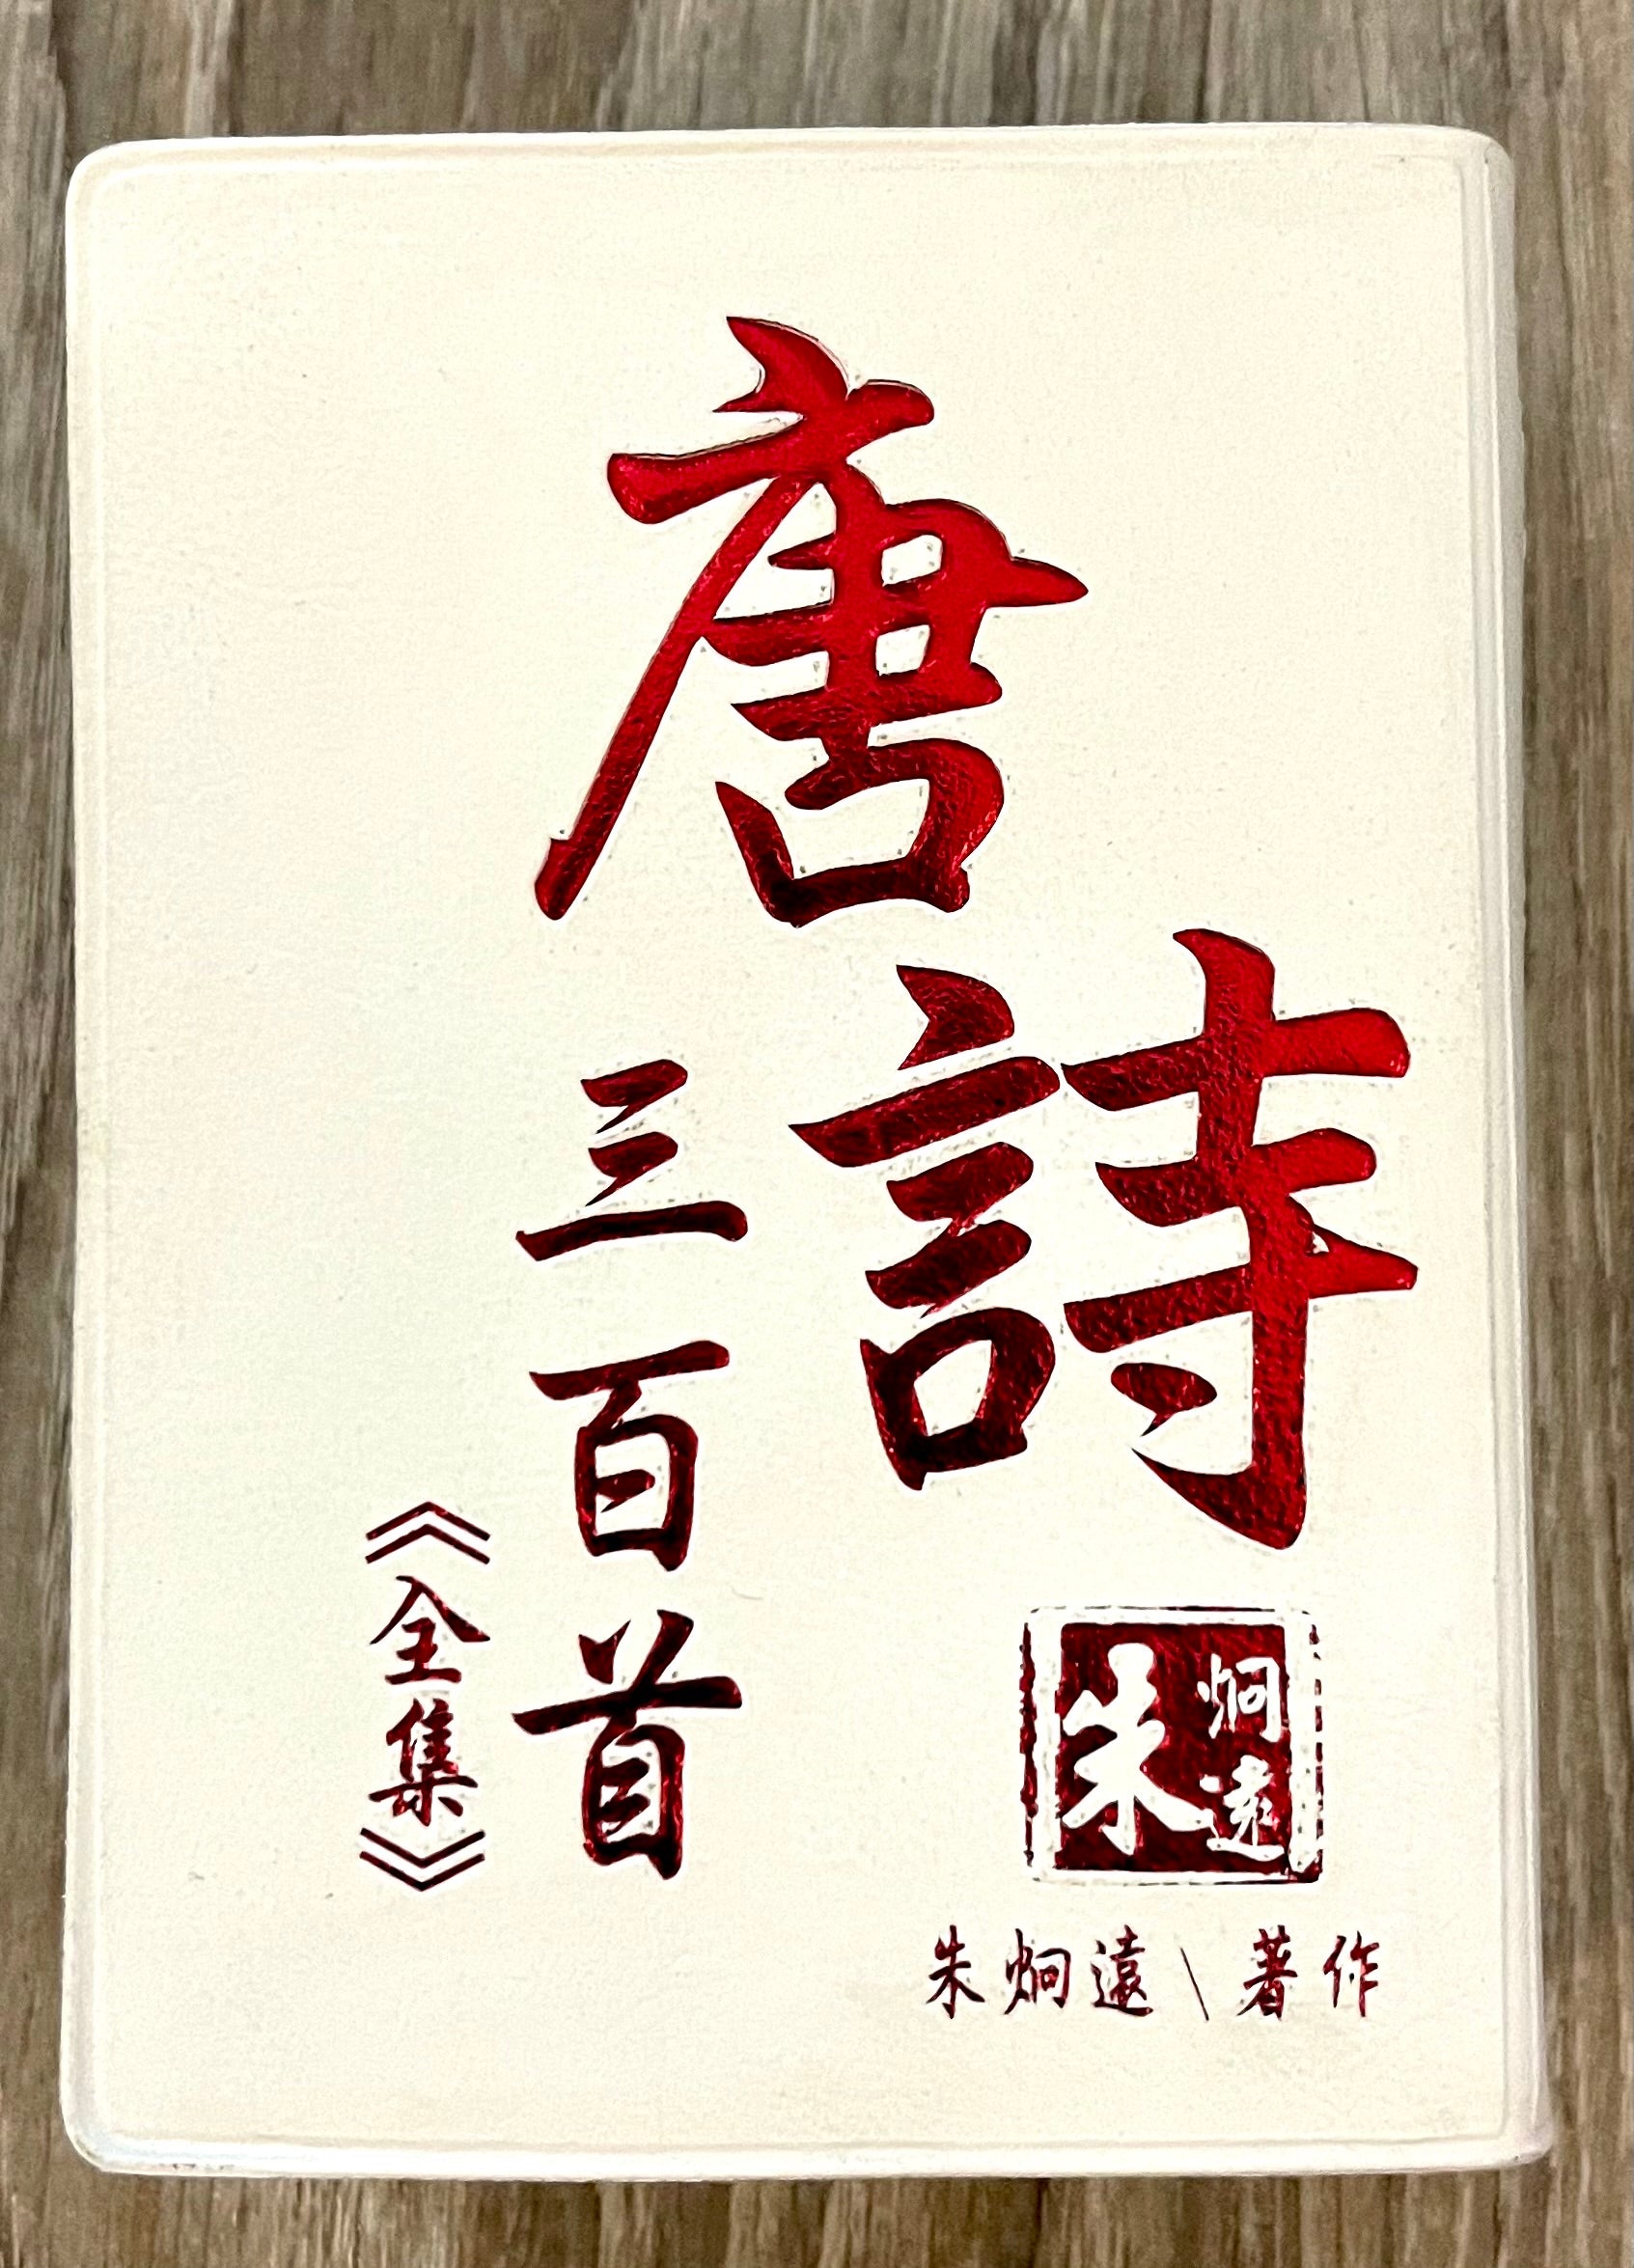 唐詩
三百首
《全集》
朱 炯遠
朱炯遠\著作